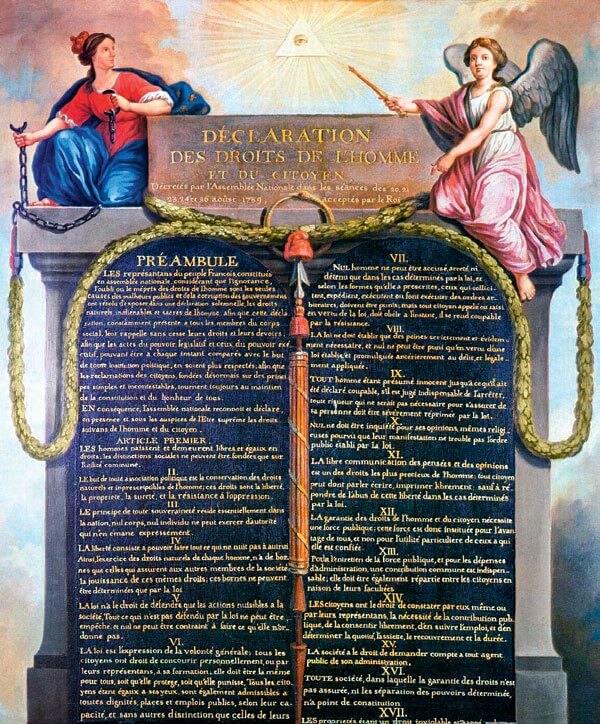 DÉCLARATION
DES DROITS DE L'HOMME
ET DU CITOYEN,
Décretés par l'Assemblée Nationale dans les séances des 20, 21
23, 24 et 26 aoûst 1789, acceptés par le Roi
PRÉAMBULE
LES représentans du peuple François, constitués
en assemblée nationale, considérant que l'ignorance,
l'oubli ou le mépris des droits de l'homme sont les seules
causes des malheurs publics et de la corruption des gouvernemens
ont résolu d'exposer dans une déclaration solemnelle, les droits
naturels, inaliénables et sacrés de l'homme: afin que cette décla-
ration, constamment présente a tous les membres du corps
social, leur rappelle sans cesse leurs droits et leurs devoirs;
afin que les actes du pouvoir législatif et ceux du pouvoir exé-
cutif, pouvant être a chaque instant comparés avec le but
de toute institution politique, en soient plus respectés; afin que
les reclamations des citoyens, fondées désormais sur des princi-
pes simples et incontestables, tournent toujours au maintien
de la constitution et du bonheur de tous.
EN conséquence, l'assemblée nationale reconnoit et déclare,
en presence et sous les auspices de l'Etre suprême les droits
suivans de l'homme et du citoyen.
ARTICLE PREMIER.
LES hommes naissent et demeurent libres et égaux en
droits; les distinctions sociales ne peuvent être fondées que sur
l'utilité commune.
II.
LE but de toute association politique est la conservation des droits
naturels et imprescriptibles de l'homme; ces droits sont la liberté,
la propriété, la sureté, et la résistance à l'oppression.
III.
LE principe de toute souveraineté réside essentiellement dans
la nation, nul corps, nul individu ne peut exercer d'autorité
qui n'en émane expressement.
LA liberté consiste à pouvoir faire tout ce qui ne nuit pas à autrui
Ainsi, l'exercice des droits naturels de chaque homme, n'a de bor-
nes que celles qui assurent aux autres membres de la société
la jouissance de ces mêmes droits; ces bornes ne peuvent
être déterminées que par la loi
V.
LA loi n'a le droit de défendre que les actions nuisibles a la
société. Tout ce qui n'est pas défendu par la loi ne peut être
empêché, et nul ne peut être contraint à faire ce qu'elle n'or-
donne pas.
VI.
LA loi est l'expression de la volonté générale; tous les
citoyens ont droit de concourir personnellement, ou par
leurs représentans, à sa formation; elle doit être la même
pour tous, soit qu'elle protege, soit qu'elle punisse. Tous les cito-
yens étans égaux a ses yeux, sont également admissibles à
toutes dignités, places et emplois publics, selon leur ca-
pacité, et sans autres distinction que celles de leurs
VII.
NUL homme ne peut être accusé, arreté, ni
détenu que dans les cas déterminés par la loi, et
selon les formes qu'elle a prescrites, ceux qui sollici-
tent, expédient, exécutent ou font exécuter des ordres ar-
bitraires, doivent être punis; mais tout citoyen appelé ou saisi
en vertu de la loi, doit obéir a l'instant, il se rend coupable
par la résistance.
VIII.
LA loi ne doit établir que des peines strictement et évidem-
ment nécessaire, et nul ne peut être puni qu'en vertu d'une
loi établie, et promulguée antérierement au délit, et légale-
ment appliquée.
IX.
TOUT homme étant présumé innocent jusqu'à ce qu'il ait
été déclaré coupable, s'il est jugé indispensable de l'arrêter,
toute rigueur qui ne serait pas nécessaire pour s'assurer de
sa personne doit être sévèrement réprimée par la loi.
X.
NUL ne doit être inquiété pour ses opinions, mêmes religi-
euses pourvu que leur manifestation ne trouble pas l'ordre
public établi par la loi.
XI.
LA libre communication des pensées et des opinions
est un des droits les plus precieux de l'homme; tout citoyen
peut donc parler écrire, imprimer librement: sauf à ré-
pondre de l'abus de cette liberté dans les cas déterminés
par la loi.
XII.
LA garantie des droits de l'homme et du citoyen nécessite
une force publique; cette force est donc instituée pour l'avan-
tage de tous, et non pour l'utilité particuliere de ceux a qui
elle est confiée.
XIII.
Pour l'entretien de la force publique, et pour les dépenses
d'administration, une contribution commune est indispen-
sable; elle doit être également répartie entre les citoyens en
raison de leurs facultées.
XIV.
LES citoyens ont le droit de constater par eux même ou
par leurs représentans, la nécessité de la contribution pub-
lique, de la consentir librement, d'en suivre l'emploi, et d'en
déterminer la quotité, l'assiette, le recouvrement et la durée.
XV.
LA société a le droit de demander compte a tout agent
public de son administration.
XVI.
TOUTE société, dans laquelle la garantie des droits n'est
pas assurée, ni les séparation des pouvoirs déterminée,
n'a point de constitution.
XVII